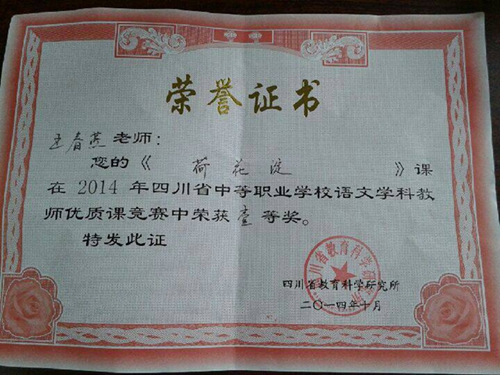 荣誉证书
王春燕老师：
您的《 荷花淀 》课
在2014年四川省中等职业学校语文学科教
师优质课竞赛中荣获壹等奖。
特发此证
四川省教育科学研究所
四川省教育科学研究所
二〇一四年十月